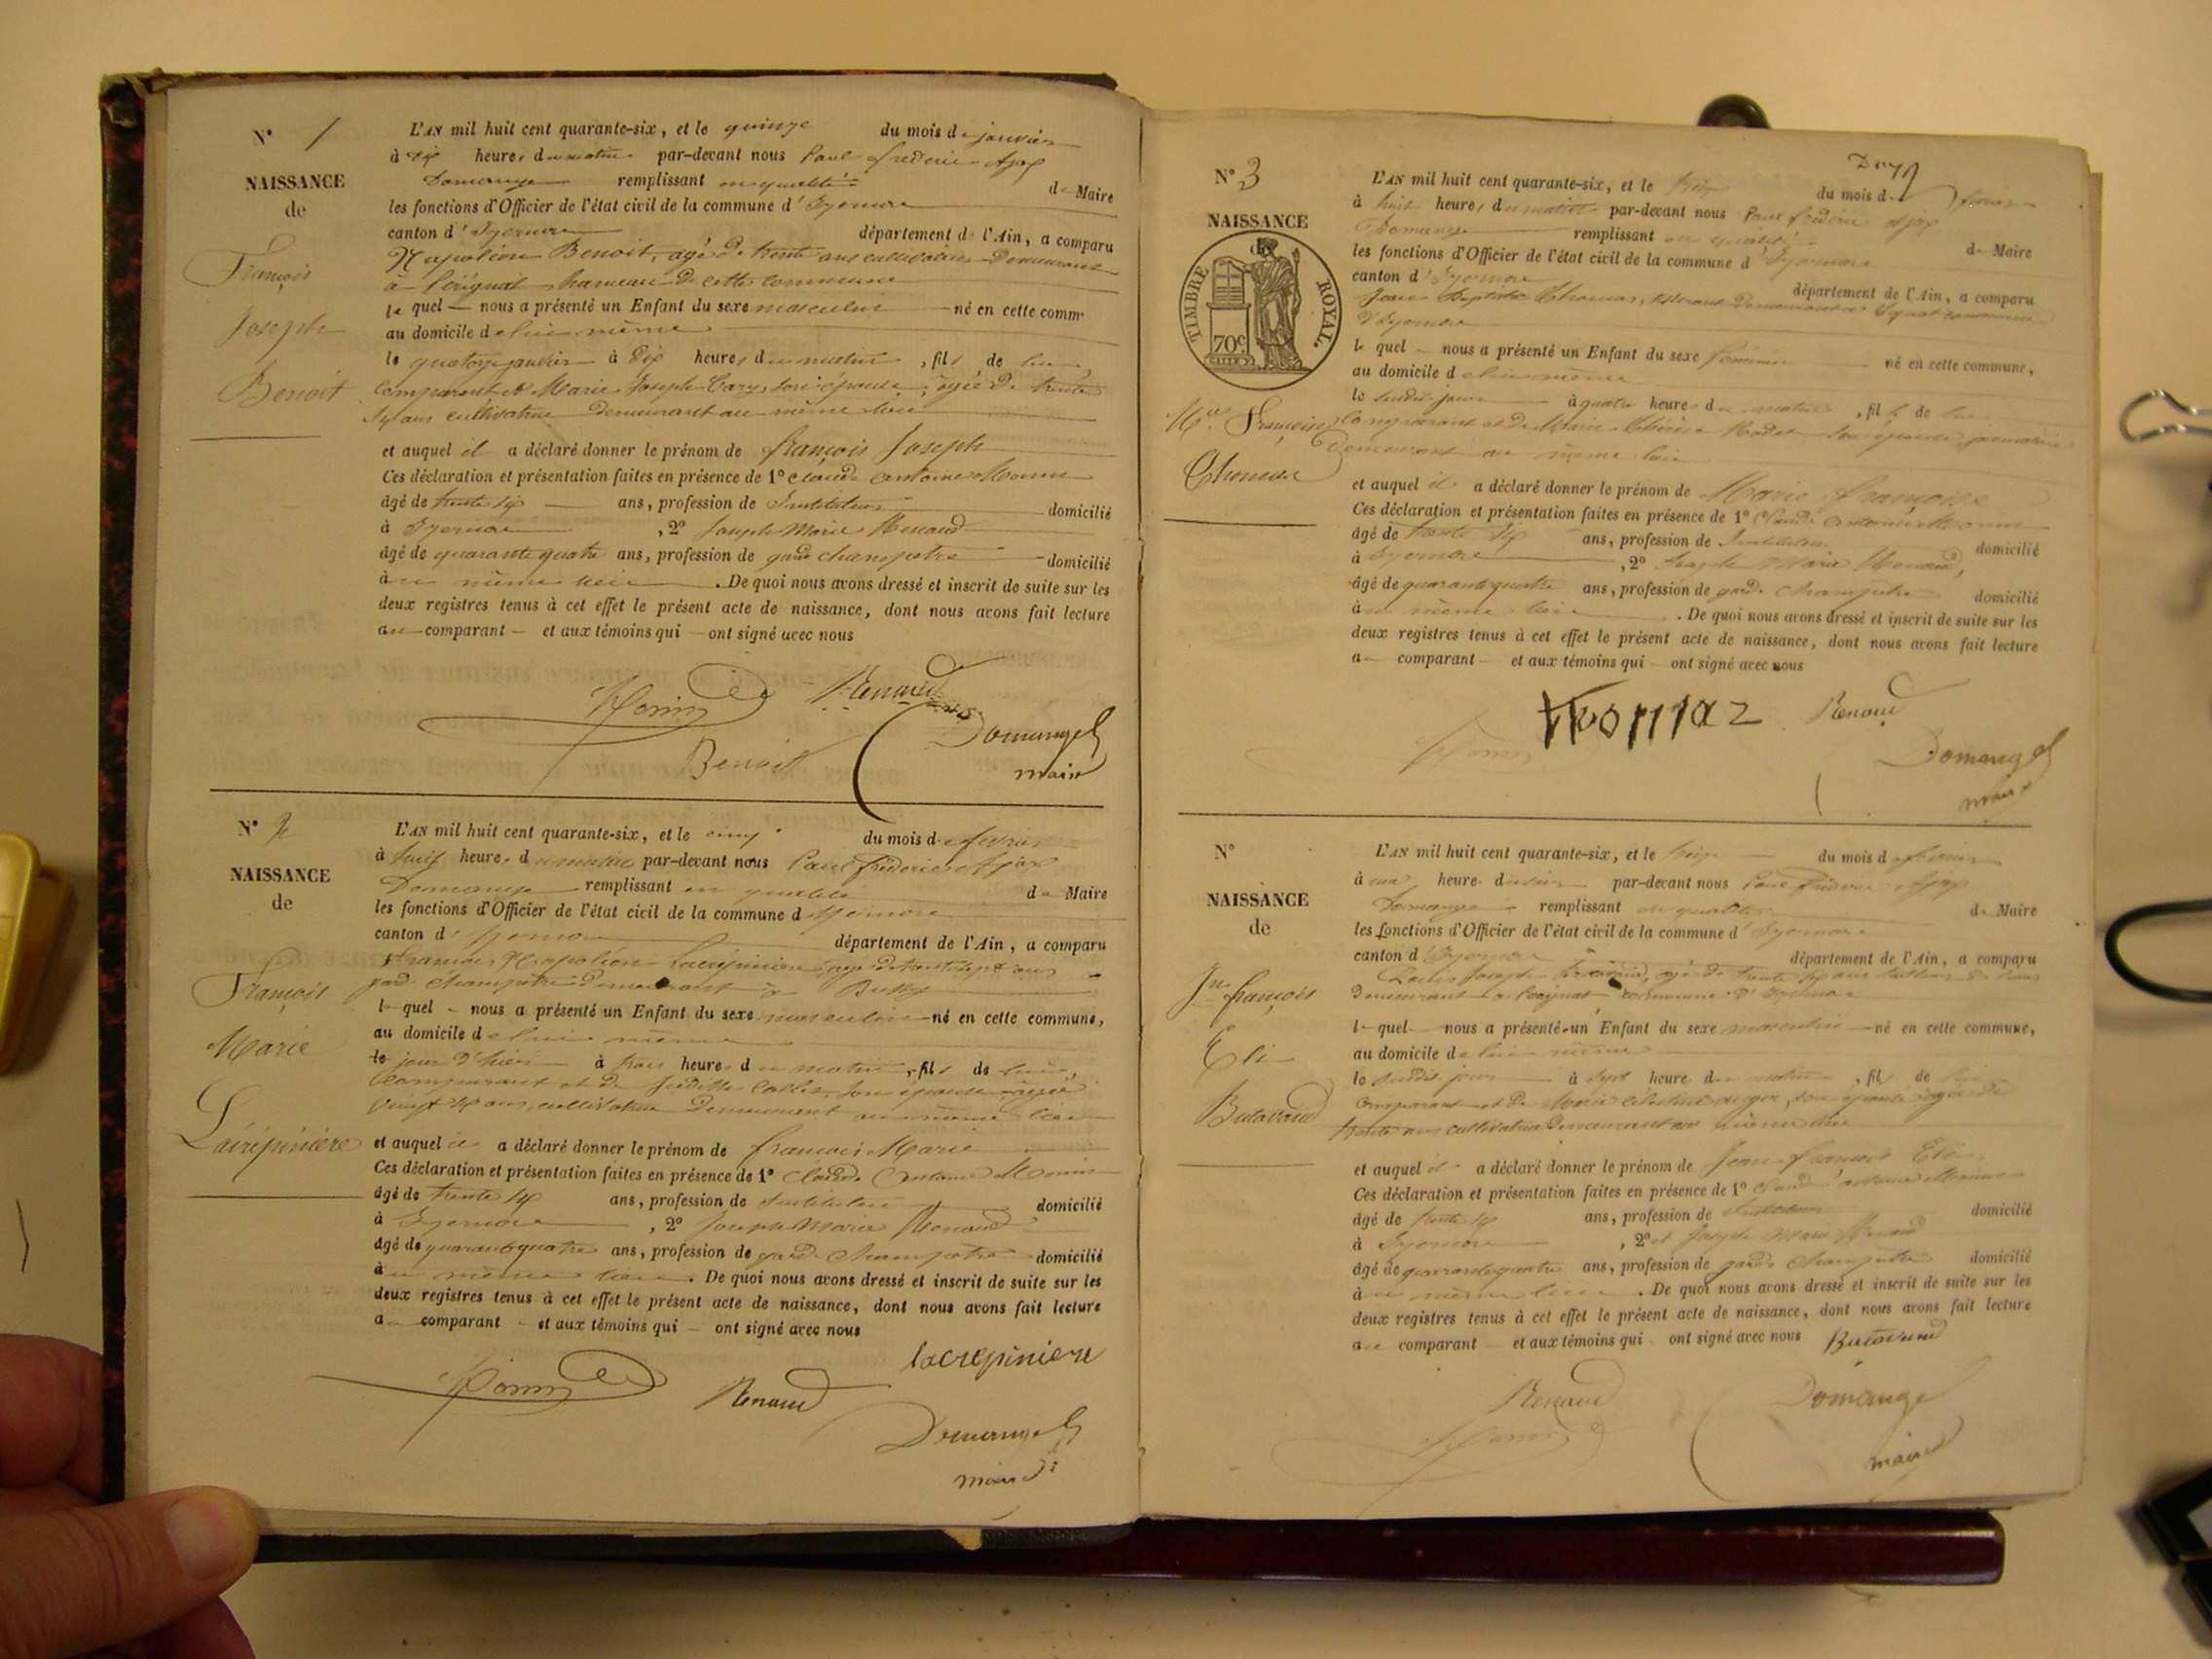 N° 1
NAISSANCE
de
François
Joseph
Benoit
L'AN mil huit cent quarante-six, et le quinze du mois de janvier
à dix heures du matin par-devant nous Paul frederic Ajax
Domange remplissant en qualité de Maire
les fonctions d'Officier de l'état civil de la commune d'Izernore
canton d'Izernore département de l'Ain, a comparu
Napoléon Benoit, agé de trente ans cultivateur Demeurant
à Pérignat hameau de cette commune
le quel nous a présenté un Enfant du sexe masculin né en cette comm.
au domicile de lui même
le quatorze janvier à Dix heures du matin, fils de lui
comparant et Marie Joseph son épouse, agée de trente
ans cultivatrice demeurant au même lieu
et auquel il a déclaré donner le prénom de françois Joseph
Ces déclaration et présentation faites en présence de 1° Claude antoine Monin
âgé de trente six ans, profession de Instituteur domicilié
à Izernore, 2° Joseph Marie Renaud
âgé de quarante quatre ans, profession de garde champetre domicilié
au même lieu. De quoi nous avons dressé et inscrit de suite sur les
deux registres tenus à cet effet le présent acte de naissance, dont nous avons fait lecture
au comparant et aux témoins qui ont signé avec nous
Monin Renaud
Benoit Domange
maire
N° 2
NAISSANCE
de
François
Marie
Lacrépinière
L'AN mil huit cent quarante-six, et le cinq du mois de fevrier
à huit heures du matin par-devant nous Paul frederic Ajax
Domange remplissant en qualité de Maire
les fonctions d'Officier de l'état civil de la commune d'Izernore
canton d'Izernore département de l'Ain, a comparu
françois Napoléon Lacrépinière, agé de trente sept ans
garde champetre Demeurant à Bussy
le quel nous a présenté un Enfant du sexe masculin né en cette commune,
au domicile de lui même
le jour d'hier à trois heures du matin, fils de lui,
comparant et de son épouse agée
vingt six ans, cultivatrice Demeurant au même lieu
et auquel il a déclaré donner le prénom de francois Marie
Ces déclaration et présentation faites en présence de 1° Claude Antoine Monin
âgé de trente six ans, profession de Instituteur domicilié
à Izernore, 2° Joseph Marie Renaud
âgé de quarante quatre ans, profession de garde champetre domicilié
au même lieu. De quoi nous avons dressé et inscrit de suite sur les
deux registres tenus à cet effet le présent acte de naissance, dont nous avons fait lecture
au comparant et aux témoins qui ont signé avec nous
lacrepiniere
Monin Renaud
Domange
maire
N° 3
NAISSANCE
de
TIMBRE ROYAL.
70c
Mie Françoise
Thomas
L'AN mil huit cent quarante-six, et le treize du mois de fevrier
à huit heures du matin par-devant nous Paul frédéric Ajax
Domange remplissant en qualité de Maire
les fonctions d'Officier de l'état civil de la commune d'Izernore
canton d'Izernore département de l'Ain, a comparu
Jean Baptiste Thomas, Demeurant à commune
d'Izernore
le quel nous a présenté un Enfant du sexe féminin né en cette commune,
au domicile de lui même
le susdit jour à quatre heures du matin, fille de lui
comparant et de Marie son épouse
Demeurant au même lieu
et auquel il a déclaré donner le prénom de Marie françoise
Ces déclaration et présentation faites en présence de 1° Claude antoine Monin
âgé de trente six ans, profession de Instituteur domicilié
à Izernore, 2° Joseph Marie Renaud,
âgé de quarante quatre ans, profession de garde champetre domicilié
au même lieu. De quoi nous avons dressé et inscrit de suite sur les
deux registres tenus à cet effet le présent acte de naissance, dont nous avons fait lecture
au comparant et aux témoins qui ont signé avec nous
Renaud
Monin Domange
maire
N°
NAISSANCE
de
Jn françois
Eli
Butavand
L'AN mil huit cent quarante-six, et le treize du mois de fevrier
à une heure du soir par-devant nous Paul frédéric Ajax
Domange remplissant en qualité de Maire
les fonctions d'Officier de l'état civil de la commune d'Izernore
canton d'Izernore département de l'Ain, a comparu
Louis Joseph agé de trente six ans
Demeurant à Perignat commune d'Izernore
le quel nous a présenté un Enfant du sexe masculin né en cette commune,
au domicile de lui même
le susdit jour à sept heure du matin, fils de lui
comparant et de Marie son épouse agée de
trente ans cultivatrice Demeurant au même lieu
et auquel il a déclaré donner le prénom de Jean francois Eli
Ces déclaration et présentation faites en présence de 1° Claude antoine Monin
âgé de trente six ans, profession de Instituteur domicilié
à Izernore, 2° et Joseph Marie Renaud
âgé de quarante quatre ans, profession de garde champetre domicilié
au même lieu. De quoi nous avons dressé et inscrit de suite sur les
deux registres tenus à cet effet le présent acte de naissance, dont nous avons fait lecture
au comparant et aux témoins qui ont signé avec nous Butavand
Renaud Domange
Monin maire